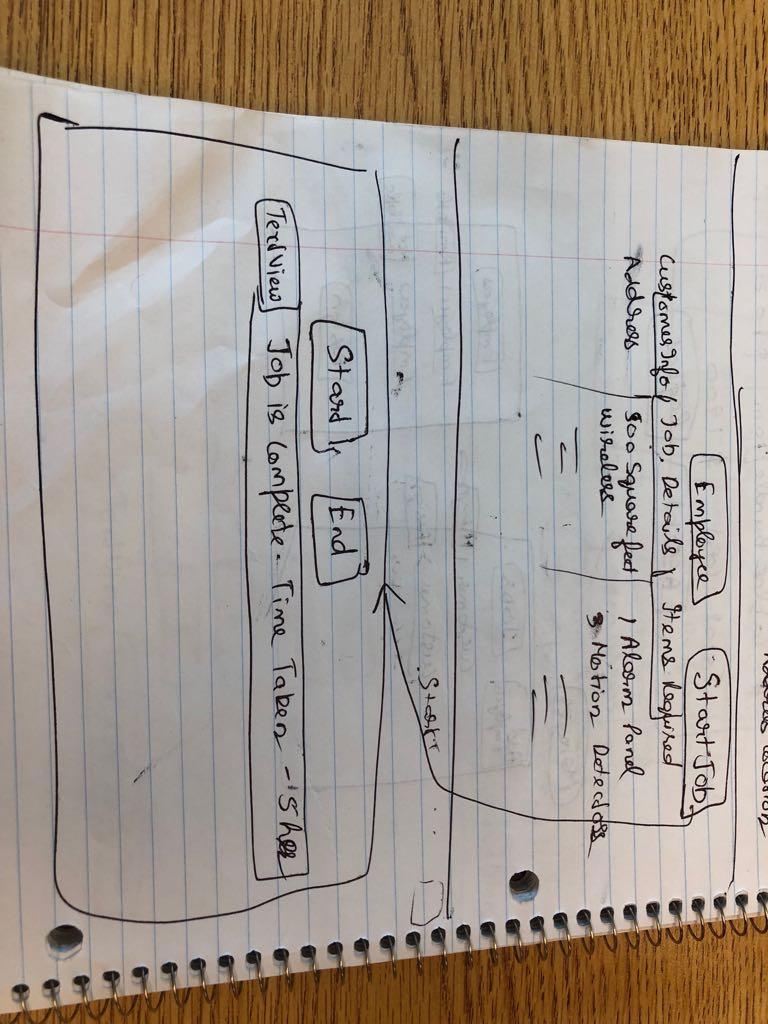 Employee Start Job
Customer Info, Job, Details, Items Required
Address 500 Square feet 1 Alarm Panel
wireless 3 Motion Detectors
Start
Start, End
TextView Job is Complete - Time Taken - 15 hrs